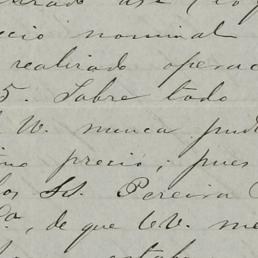 precio nominal
realizado opera
5. Sobre todo
W. nunca pud
precio; pues
los SS. Pereira
Ca, de que VV. me